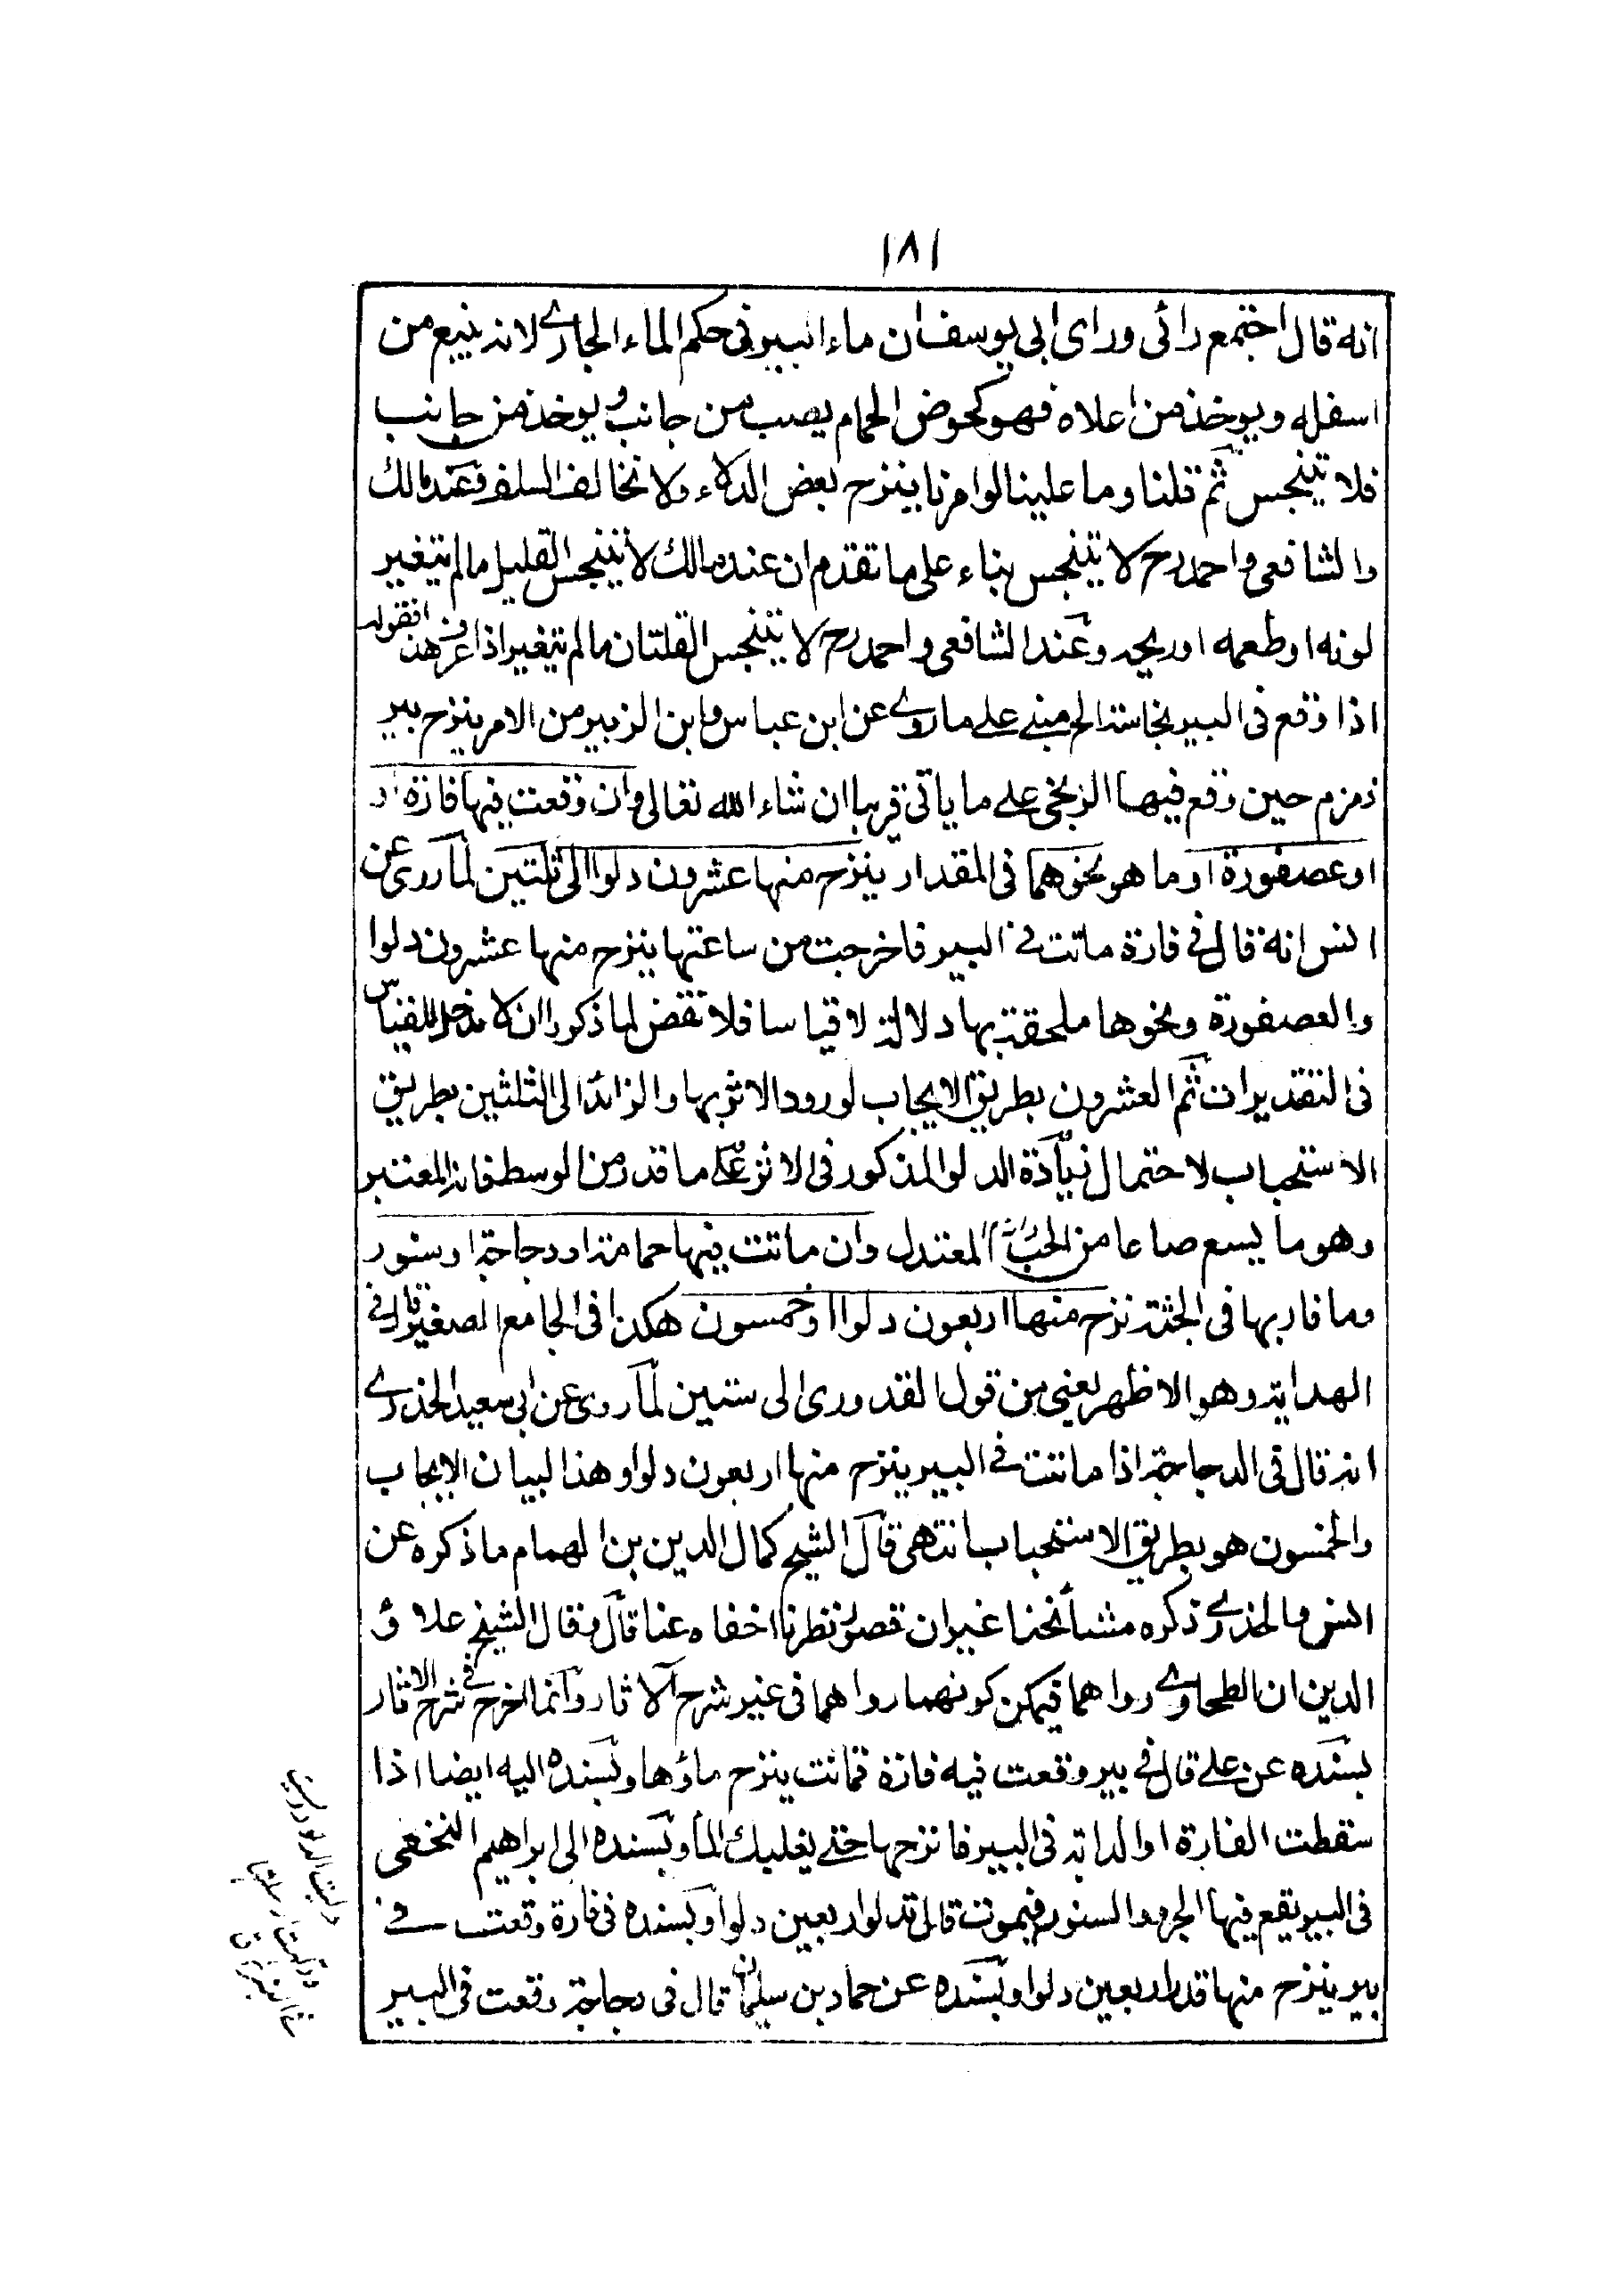 ١٨١
انه قال اجتمع رائى وراى ابى يوسف ان ماء البير فى حكم الماء الجارے لانه ينبع من
اسفله ويوخذ من اعلاه فهو كحوض الحمام يصب من جانب ويوخذ من جانب
فلا يتنجس ثم قلنا وما علينا لو امرنا بنزح بعض الدلاء ولا نخالف السلف وعند مالك
والشافعى واحمد رح لا يتنجس بناء على ما تقدم ان عند مالك لا يتنجس القليل مالم يتغير
لونه او طعمه او ريحه وعند الشافعى واحمد رح لا يتنجس القلتان مالم يتغير اذا عرف هذا فقوله
اذا وقع فى البير نجاسة الخ مبنے علے ماروے عن ابن عباس وابن الزبير من الامر بنزح بير
زمزم حين وقع فيها الزنجى علے ما ياتى قريبا ان شاء الله تعالى وان وقعت فيها فارة او
او عصفورة او ما هو نحوهما فى المقدار ينزح منها عشرون دلوا الى ثلثين لما روى عن
انس انه قال فى فارة ماتت فى البير فاخرجت من ساعتها ينزح منها عشرون دلوا
والعصفورة ونحوها ملحقة بها دلالة لا قياسا فلا نقض لما ذكروا ان لا مدخل للقياس
فى التقديرات ثم العشرون بطريق الايجاب لورود الاثر بها والزائد الى الثلثين بطريق
الاستحباب لاحتمال زيادة الدلو المذكور فى الاثر على ما قدر من الوسط فانه المعتبر
وهو ما يسع صاعا من الحب المعتدل وان ماتت فيها حمامة او دجاجة او سنور
وما قاربها فى الجثة نزح منها اربعون دلوا او خمسون هكذا فى الجامع الصغير قال فى
الهداية وهو الاظهر يعنى من قول القدورى الى ستين لما روى عن ابى سعيد الخدرے
انه قال فى الدجاجة اذا ماتت فى البير ينزح منها اربعون دلوا وهذا لبيان الايجاب
والخمسون هو بطريق الاستحباب انتهى قال الشيخ كمال الدين بن الهمام ما ذكره عن
انس والخدرے ذكره مشائخنا غير ان قصور نظرنا اخفاه عنا قال وقال الشيخ علاؤ
الدين ان الطحاوے رواهما فيمكن كونهما رواهما فى غير شرح الآثار وانما اخرج فى شرح الاثار
بسنده عن علے قال فى بير وقعت فيه فارة فماتت ينزح ماؤها وبسنده اليه ايضا اذا
سقطت الفارة او الدابة فى البير فانزحها حتے يغلبك الماء وبسنده الى ابراهيم النخعى
فى البير يقع فيها الجرذ والسنور فيموت قال تدلو اربعين دلوا وبسنده فى فارة وقعت فے
بير ينزح منها قدر اربعين دلوا وبسنده عن حماد بن سليمان قال فى دجاجة وقعت فى البير